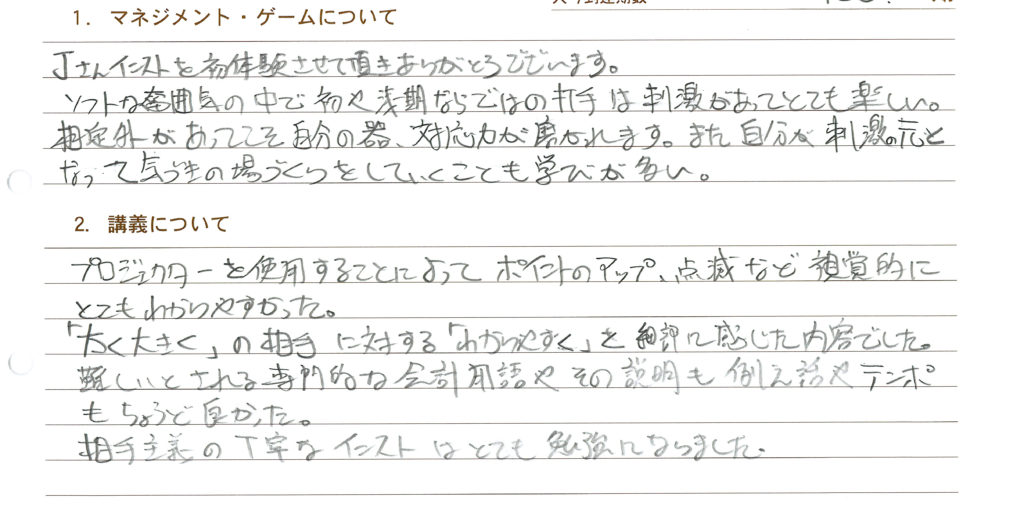 1. マネジメント・ゲームについて
Jさんインストを初体験させて頂きありがとうございます。
ソフトな雰囲気の中で初や浅期ならではの打手は刺激があってとても楽しい。
想定外があってこそ自分の器、対応力が磨かれます。また自分が刺激の元と
なって気づきの場づくりをしていくことも学びが多い。
2. 講義について
プロジェクターを使用することによってポイントのアップ、点滅など視覚的に
とてもわかりやすかった。
「太く大きく」の相手に対する「わかりやすく」を に感じた内容でした。
難しいとされる専門的な会計用語やその説明も例え話やテンポ
もちょうど良かった。
相手主義の丁寧なインストはとても勉強になりました。